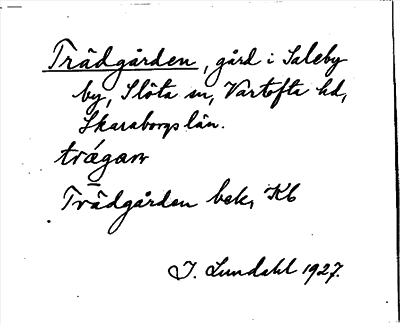 Trädgården, gård i Saleby
by, Slöta sn, Vartofta hd,
Skaraborgs län.
trágaɷ
Trädgården bek, Kb
J. Lundahl 1927.